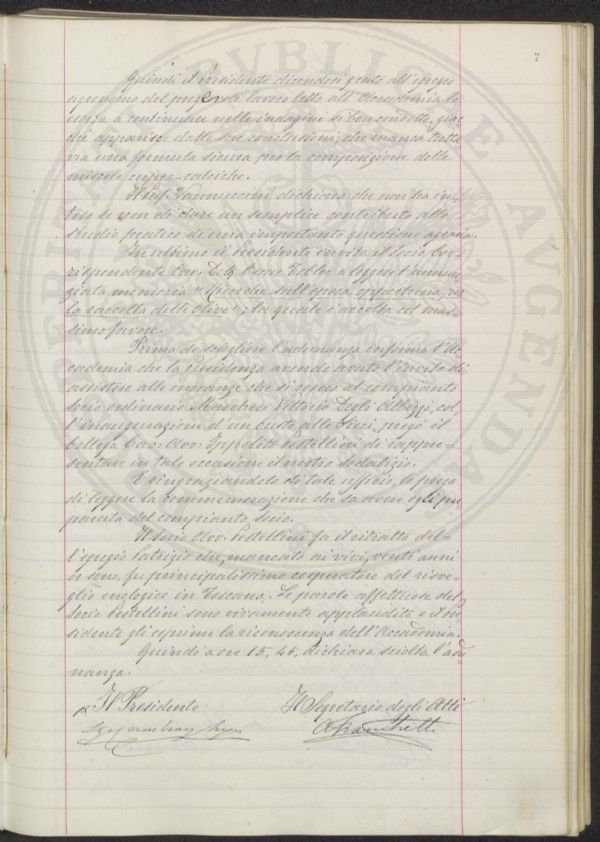 7
Quindi il Presidente dicendosi grato all'egregio
agronomo del pregevole lavoro letto all'Accademia lo
esorta a continuare nelle indagini sì ben condotte, giac
chè apparisce dalle sue conclusioni, che manca tutta
via una formula sicura per la composizione delle
miscele cupro-calciche.
Il Cav. Vannuccini dichiara che non ha in-
teso se non di dare un semplice contributo allo
studio pratico di una importante questione agraria.
In ultimo il Presidente invita il Socio Cor-
rispondente Cav. Dott. Oscar Tobler a leggere l'annun-
ziata memoria "Ricerche sull'epoca opportuna per
la raccolta delle Olive"; la quale è accolta col mas
simo favore.
Prima di sciogliere l'adunanza informa l'Ac
cademia che la Presidenza avendo avuto l'invito di
assistere alle onoranze che si resero al compianto
socio ordinario Marchese Vittorio Degli Albizzi, col
l'inaugurazione d'un busto alle Sieci, pregò il
Collega Cav. Avv. Ippolito Pestellini di rappre-
sentare in tale occasione il nostro Sodalizio.
E ringraziandolo di tale ufficio, lo prega
di leggere la commemorazione che sa avere egli pre
parata del compianto Socio.
Il Socio Avv. Pestellini fa il ritratto del-
l'egregio Patrizio che, mancato ai vivi, venti anni
or sono, fu principalissimo cooperatore del risve-
glio enologico in Toscana. Le parole affettuose del
Socio Pestellini sono vivamente applaudite e il Pre
sidente gli esprime la riconoscenza dell'Accademia.
Quindi a ore 15,45, dichiara sciolta l'adu
nanza.
Il Presidente
Il Segretario degli Atti
PROSPERITATI PVBLICAE AVGENDAE